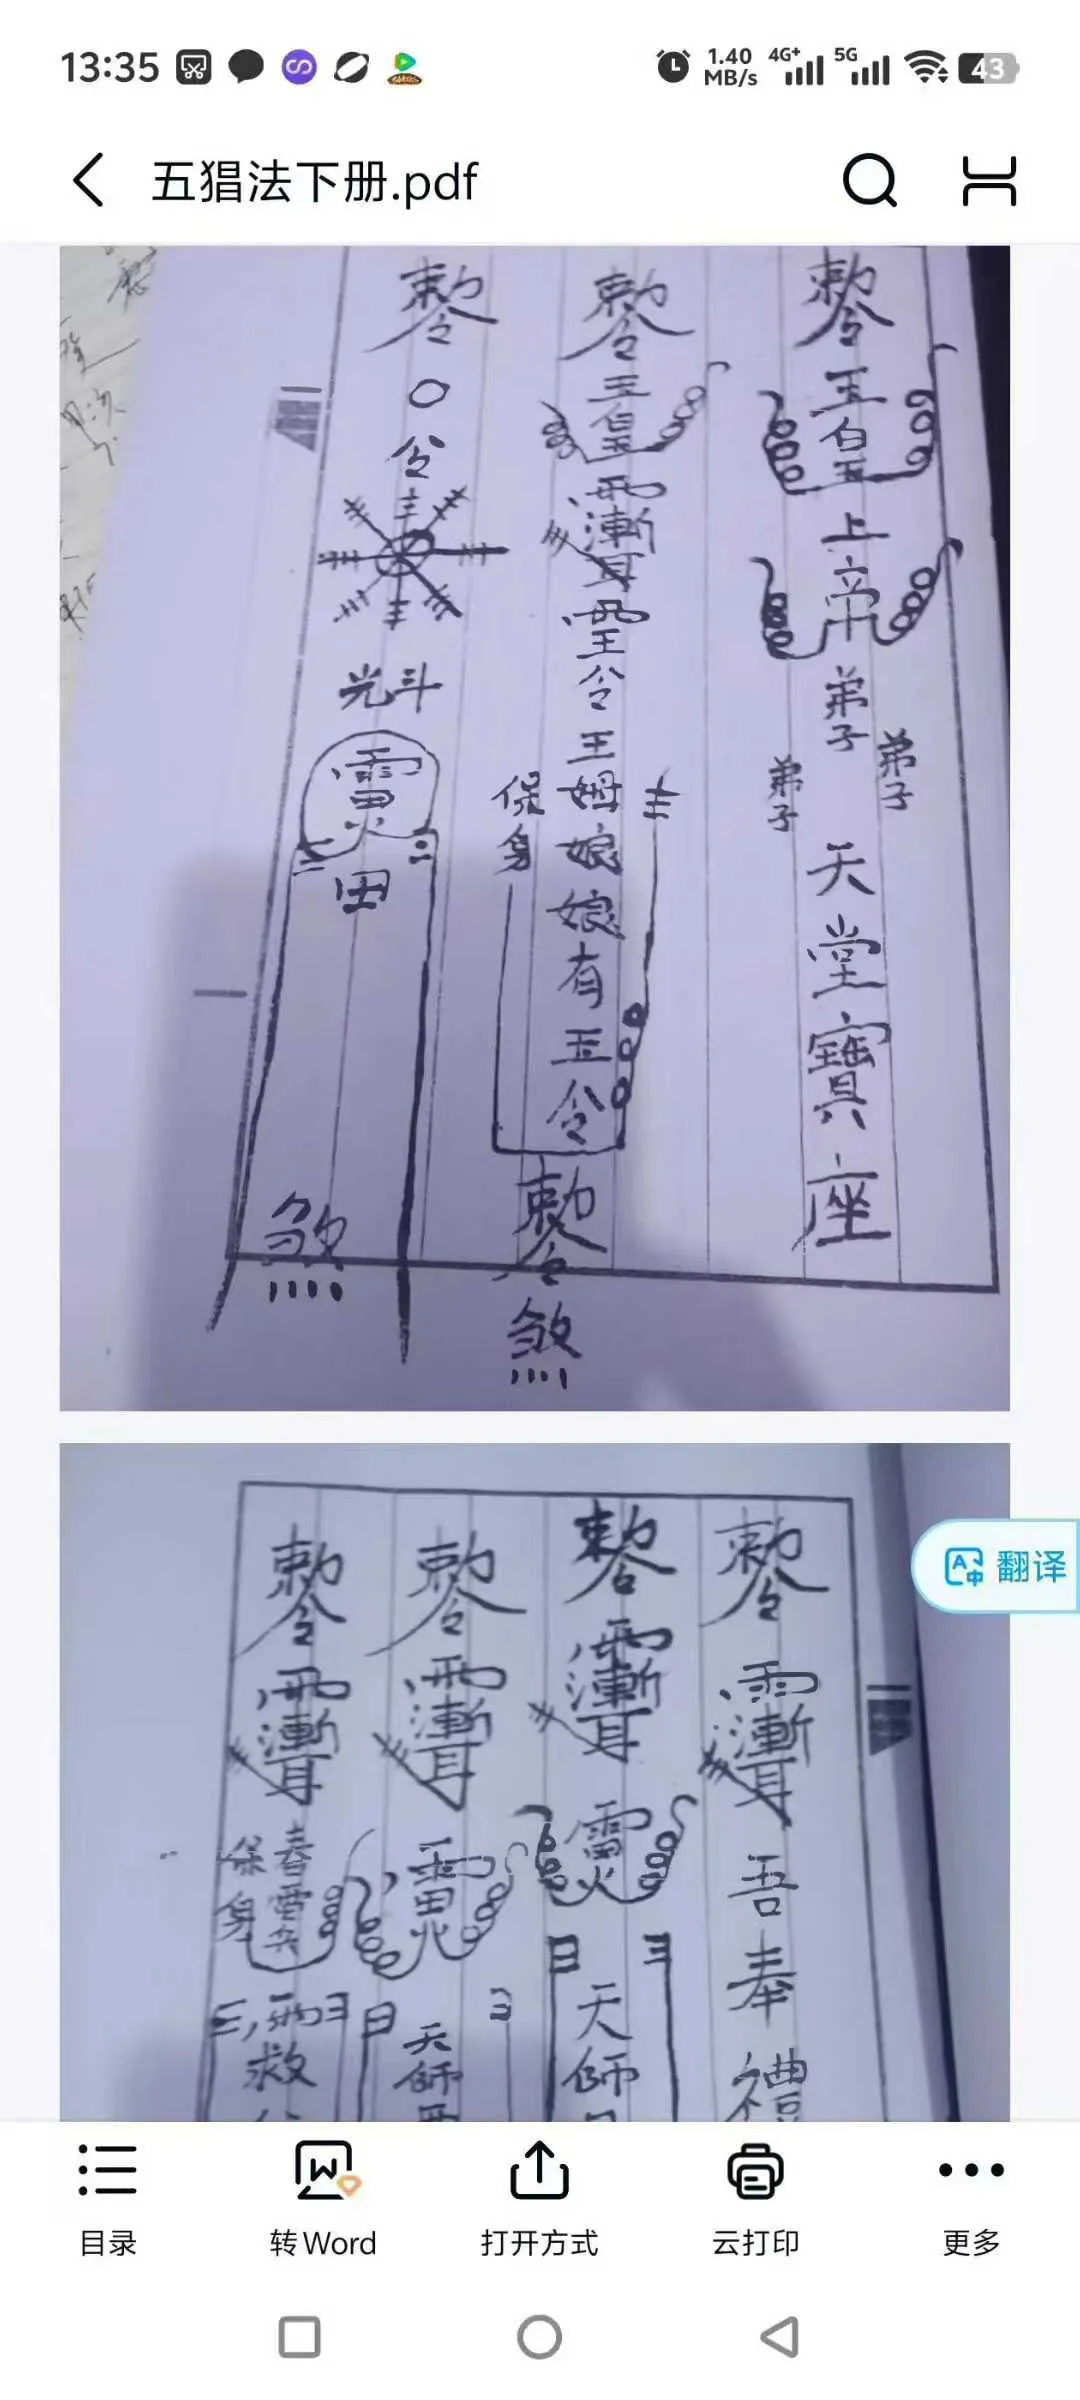 13:35
1.40 MB/s 4G+ 5G 43
五猖法下册.pdf
敕令
玉皇
上帝
弟子
弟子
弟子
天堂寶座
敕令
玉皇
令
王姆娘娘有玉令
保身
敕令
煞
敕令
〇
令
光斗
雷火
田
煞
敕令
吾奉
敕令
雷火
天師
敕令
雷火
天師
敕令
保身
春雷
救
翻译
目录
转Word
打开方式
云打印
更多